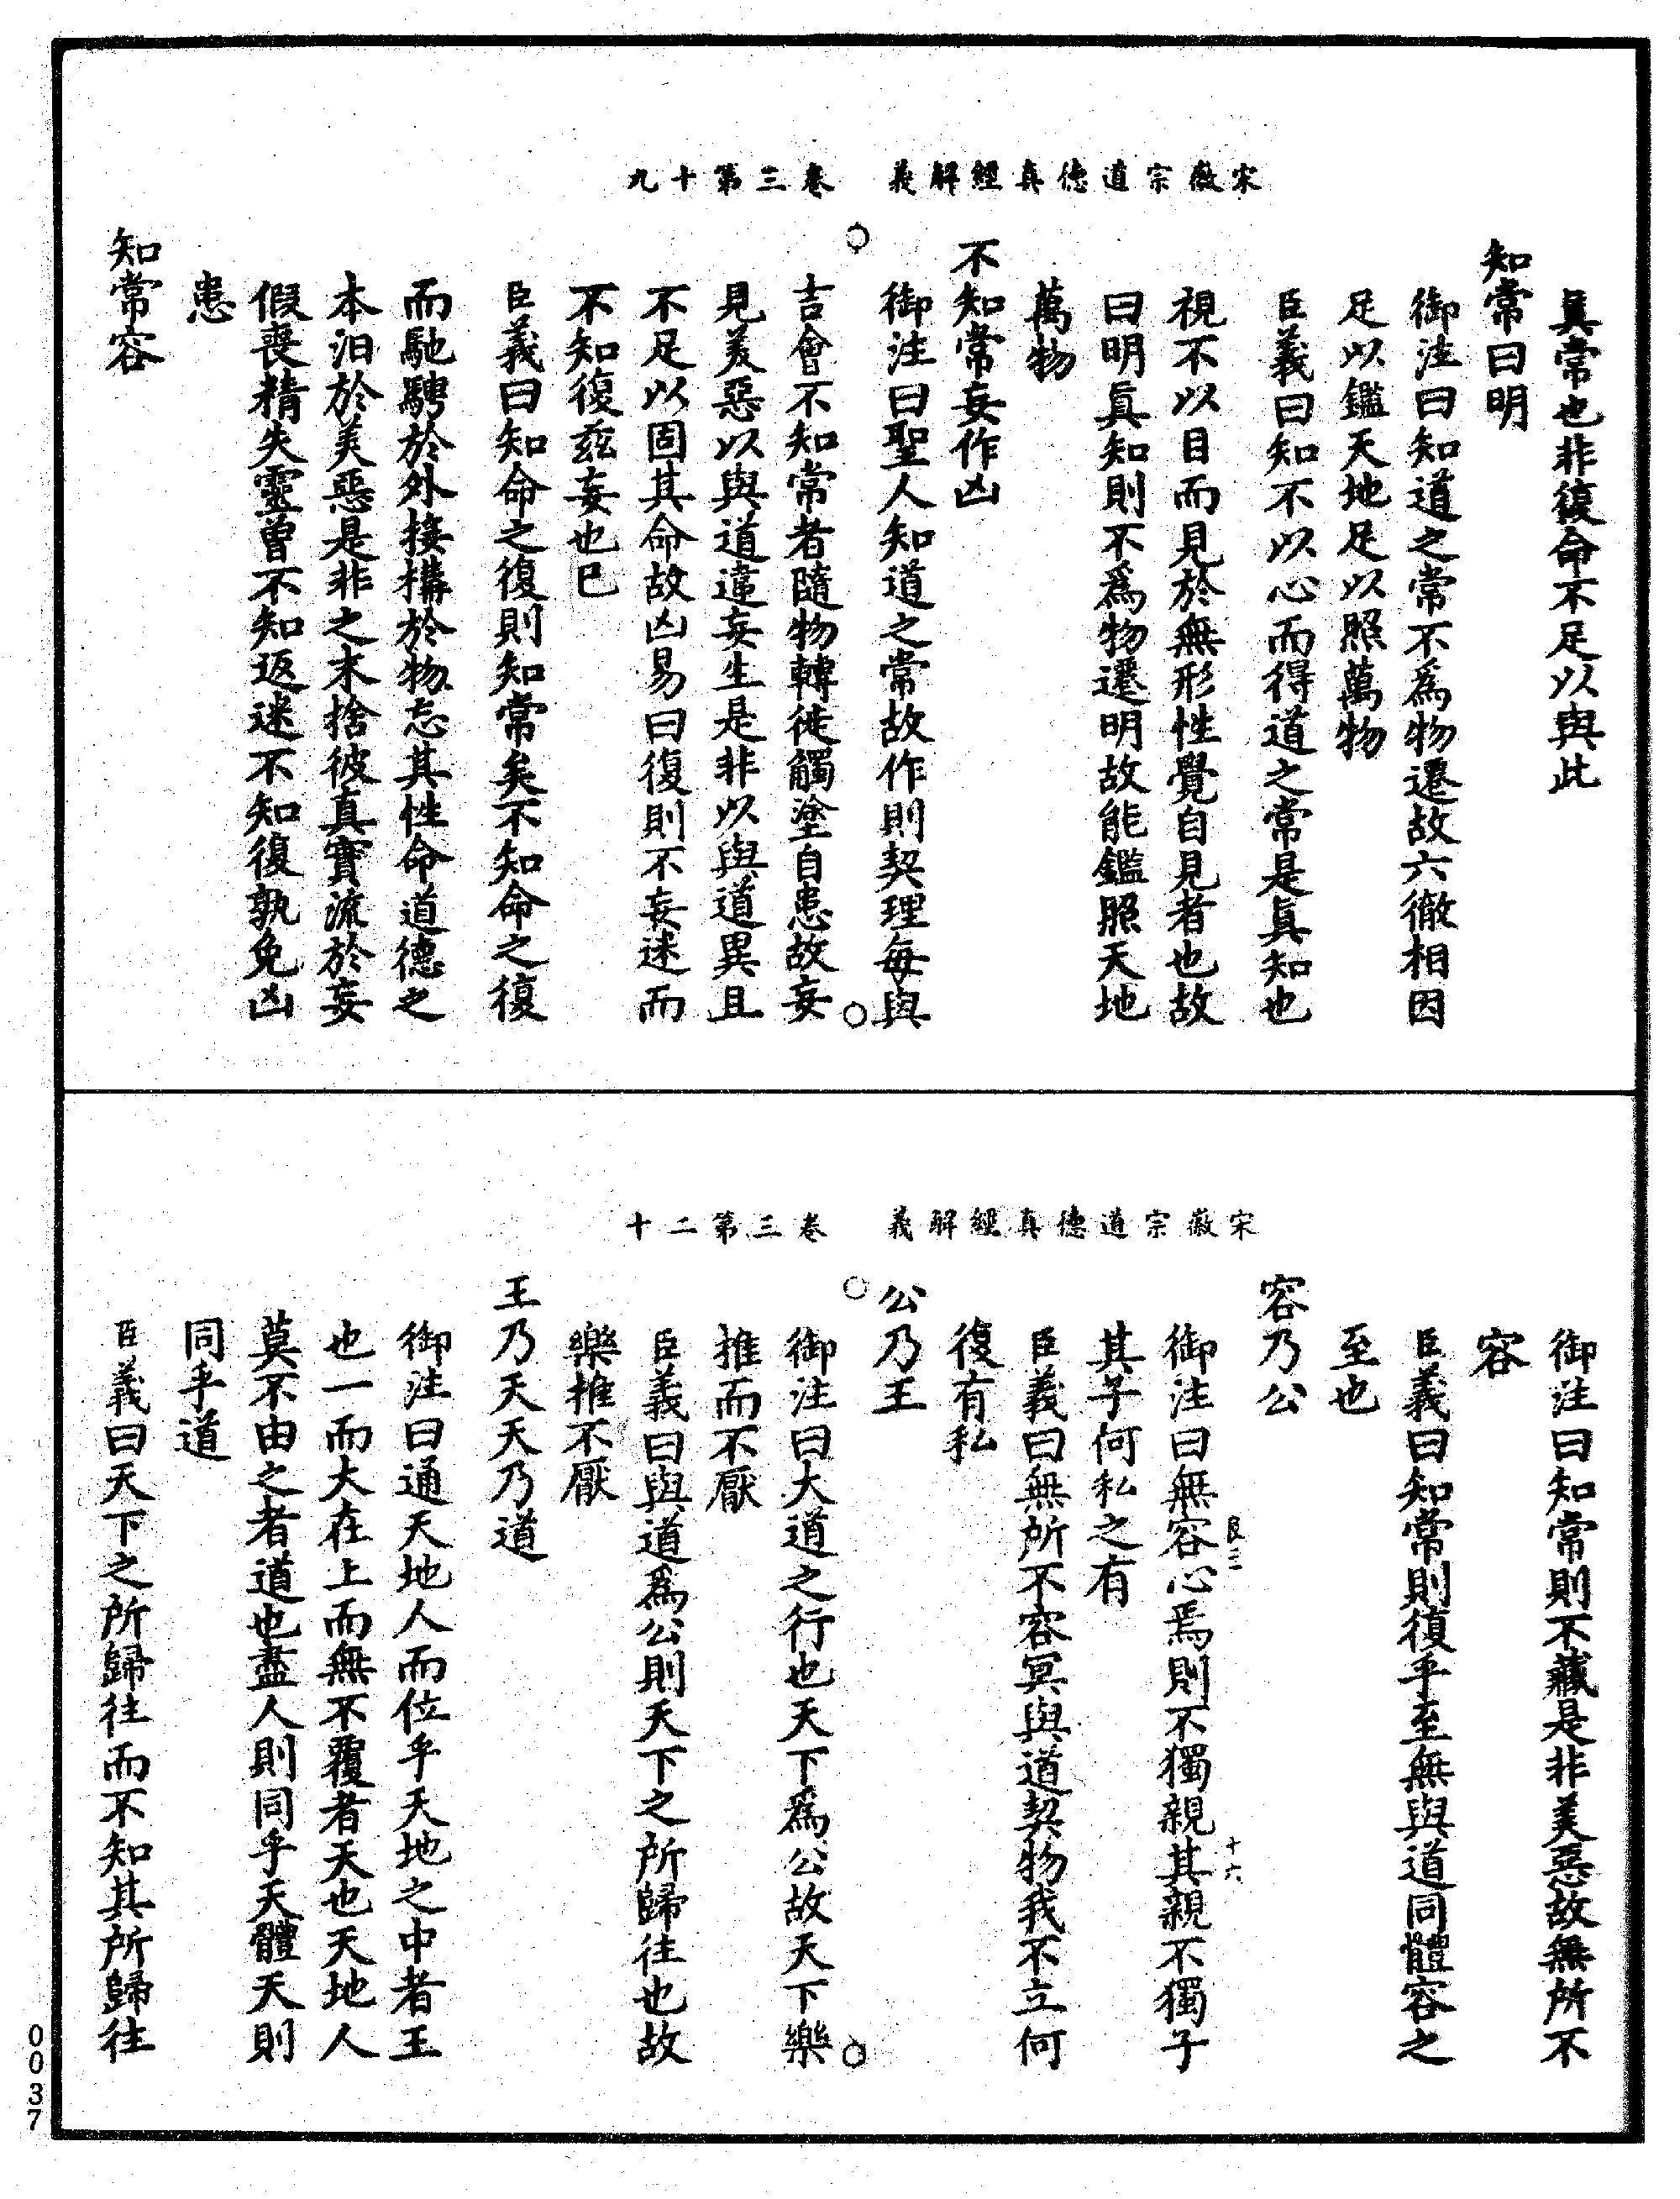 宋徽宗道德真經解義　卷三第十九
真常也非復命不足以與此
知常曰明
御注曰知道之常不為物遷故六徹相因
足以鑑天地足以照萬物
臣義曰知不以心而得道之常是真知也
視不以目而見於無形性覺自見者也故
曰明真知則不為物遷明故能鑑照天地
萬物
不知常妄作凶
御注曰聖人知道之常故作則契理每與
吉會不知常者隨物轉徙觸塗自患故妄
見美惡以與道違妄生是非以與道異且
不足以固其命故凶易曰復則不妄迷而
不知復茲妄也已
臣義曰知命之復則知常矣不知命之復
而馳騁於外接搆於物忘其性命道德之
本汨於美惡是非之末捨彼真實流於妄
假喪精失靈曾不知返迷不知復孰免凶
患
知常容
宋徽宗道德真經解義　卷三第二十
御注曰知常則不藏是非美惡故無所不
容
臣義曰知常則復乎至無與道同體容之
至也
容乃公
御注曰無容心焉則不獨親其親不獨子
其子何私之有
臣義曰無所不容冥與道契物我不立何
復有私
公乃王
御注曰大道之行也天下為公故天下樂
推而不厭
臣義曰與道為公則天下之所歸往也故
樂推不厭
王乃天天乃道
御注曰通天地人而位乎天地之中者王
也一而大在上而無不覆者天也天地人
莫不由之者道也盡人則同乎天體天則
同乎道
臣義曰天下之所歸往而不知其所歸往
0037